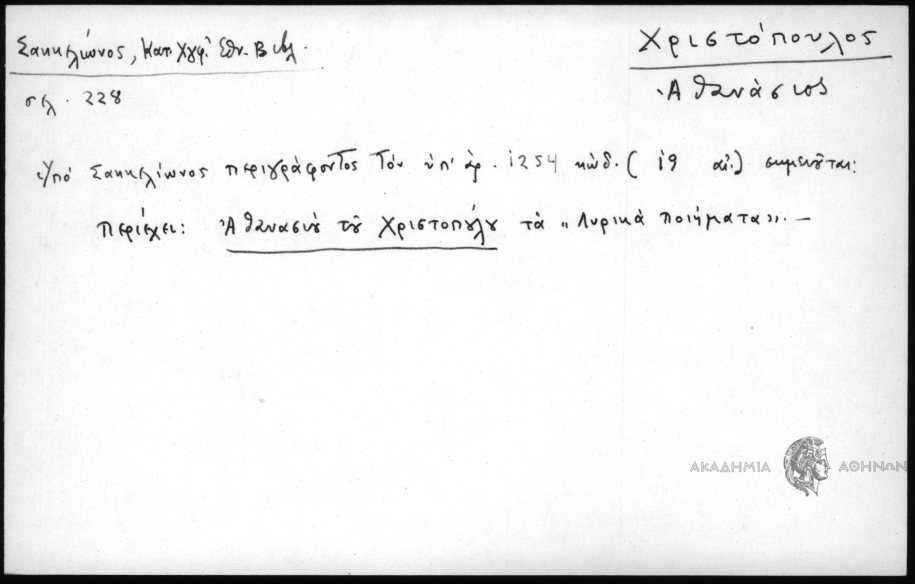 Σακκελίωνος, Κατ. Χγφ. Εθν. Βιβλ.
Χριστόπουλος
Ἀθανάσιος
σελ. 228
Ὑπό Σακκελίωνος περιγράφοντος τόν ὑπ' ἀρ. 1254 κώδ. (19 αἰ.) σημειοῦται:
Περιέχει: Ἀθανασίου τοῦ Χριστοπούλου τὰ "Λυρικὰ ποιήματα". —
ΑΚΑΔΗΜΙΑ ΑΘΗΝΩΝ